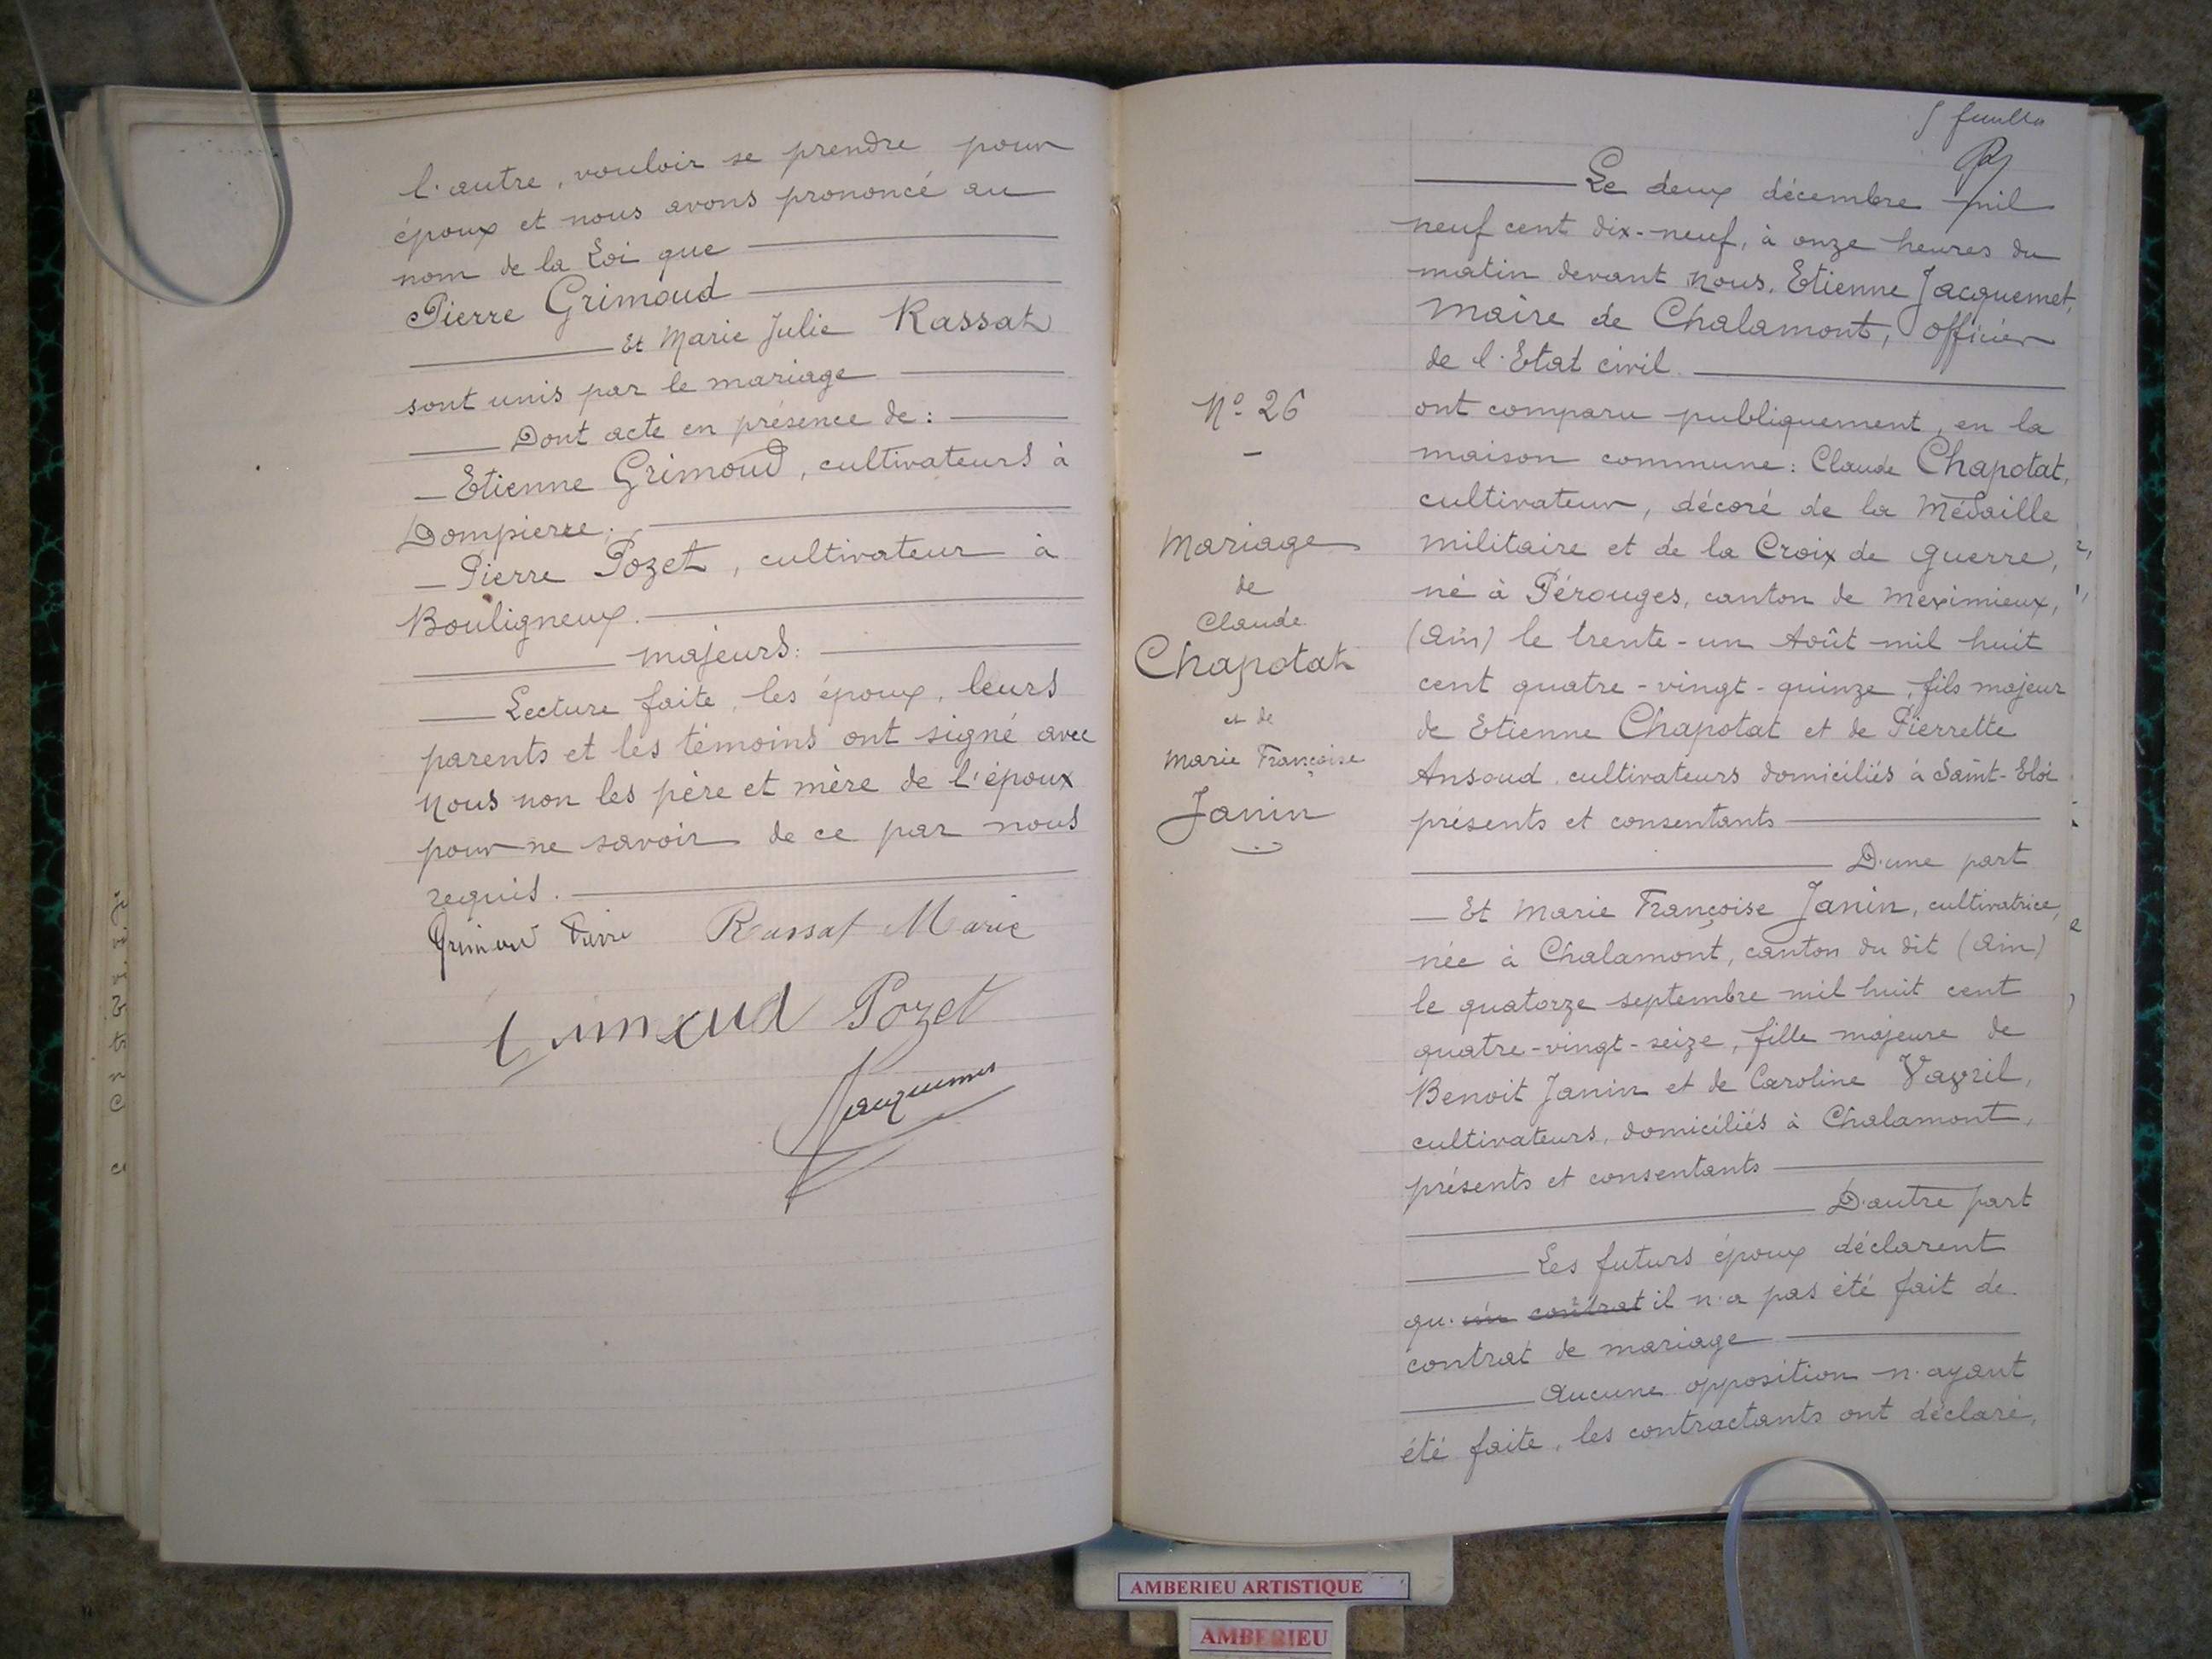 l'autre, vouloir se prendre pour
époux et nous avons prononcé au
nom de la Loi que
Pierre Grimoud
Et Marie Julie Rassat
sont unis par le mariage
Dont acte en présence de :
Etienne Grimoud, cultivateurs à
Dompierre.
Pierre Pozet, cultivateur à
Bouligneux.
majeurs.
Lecture faite, les époux, leurs
parents et les témoins ont signé avec
Nous non les père et mère de l'époux
pour ne savoir de ce par nous
requis.
Grimoud Pierre Rassat Marie
Grimoud Pozet
Jacquemet
5 feuille
Le deux décembre mil
neuf cent dix-neuf, à onze heures du
matin devant Nous, Etienne Jacquemet,
Maire de Chalamont, officier
de l'Etat civil.
ont comparu publiquement, en la
maison commune : Claude Chapotat,
cultivateur, décoré de la Médaille
militaire et de la Croix de guerre,
né à Pérouges, canton de Meximieux,
(Ain) le trente-un Août mil huit
cent quatre-vingt-quinze, fils majeur
de Etienne Chapotat et de Pierrette
Ansoud cultivateurs domiciliés à Saint-Eloi
présents et consentants
D'une part
Et Marie Françoise Janin, cultivatrice,
née à Chalamont, canton du dit (Ain)
le quatorze septembre mil huit cent
quatre-vingt-seize, fille majeure de
Benoit Janin et de Caroline Vayril,
cultivateurs, domiciliés à Chalamont,
présents et consentants
D'autre part
Les futurs époux déclarent
qu'un contrat il n'a pas été fait de
contrat de mariage
Aucune opposition n'ayant
été faite, les contractants ont déclaré,
N° 26
Mariage
de
Claude
Chapotat
et de
Marie Françoise
Janin
AMBERIEU ARTISTIQUE
AMBERIEU